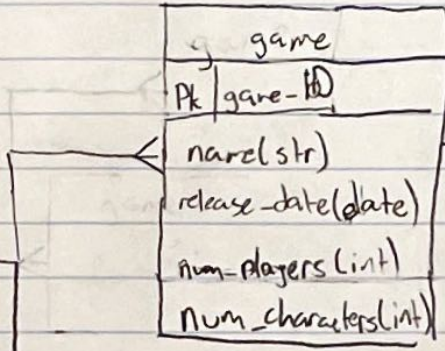 game
Pk game-ID
name(str)
release_date(date)
num_players(int)
num_characters(int)